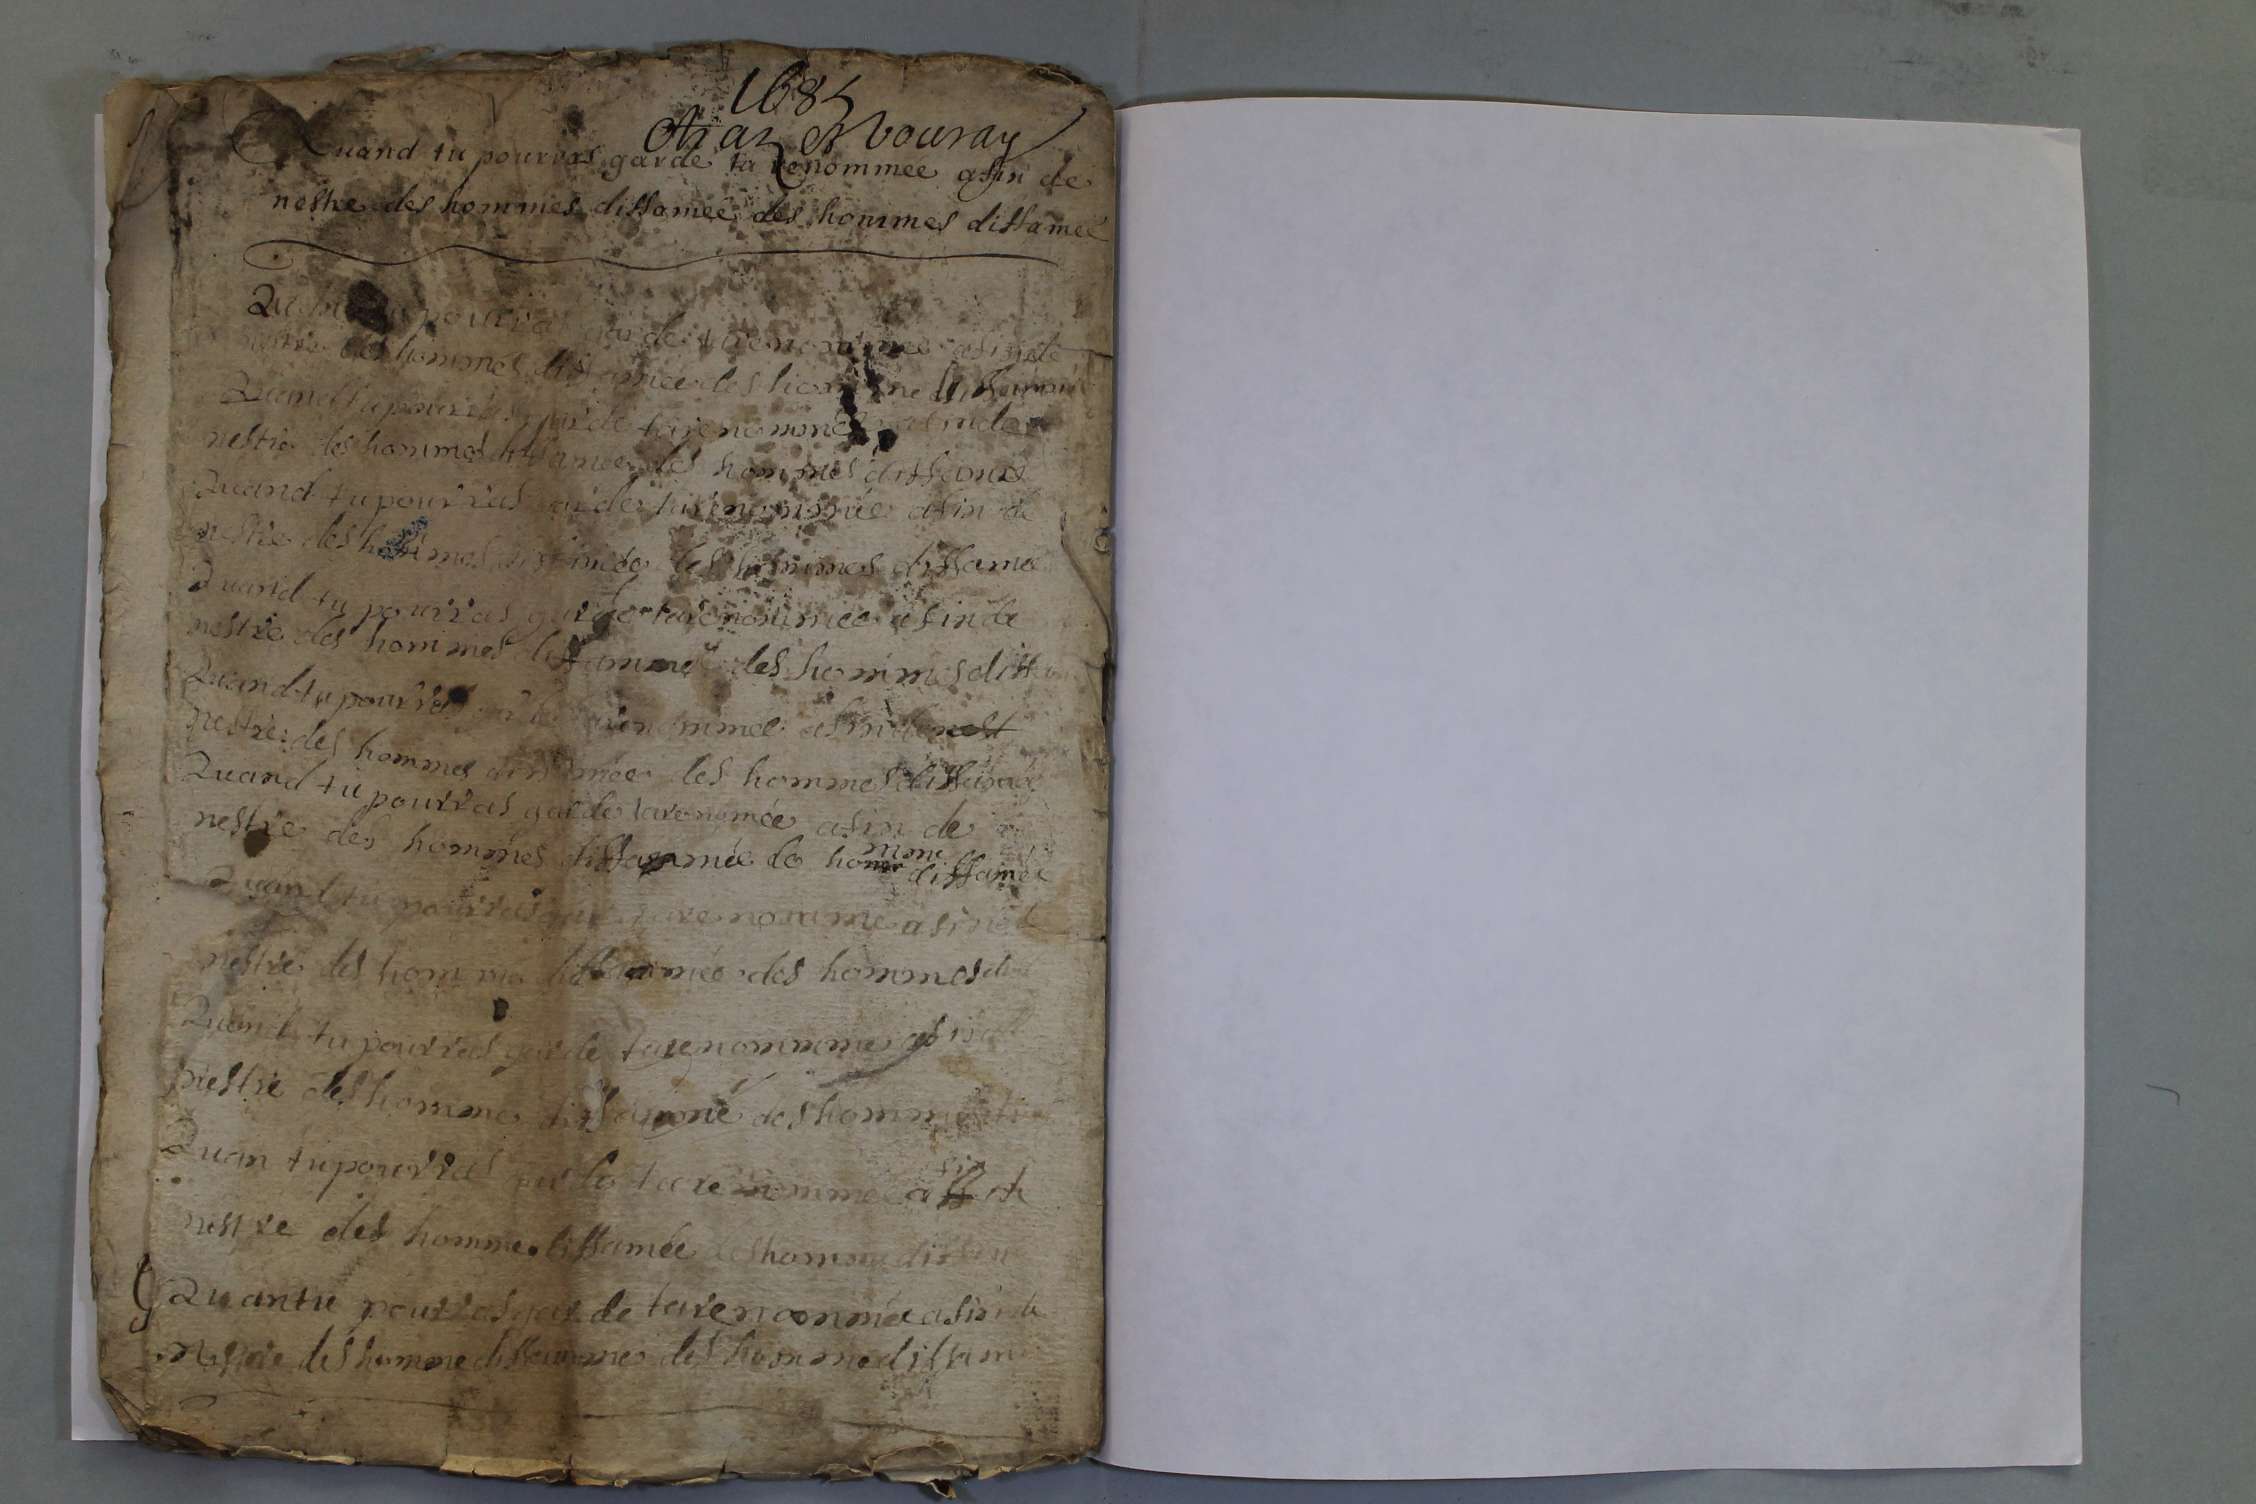 1685
et vouray
Quand tu pourras garde ta renommée afin de
nestre des hommes diffamée des hommes diffamée
pourras garde ta renommée afin de
nestre des hommes diffamée des homme diffamée
Quand tu pourras garde ta renommée afin de
nestre des hommes diffamée des hommes diffamé
Quand tu pourras garde ta renommée afin de
nestre des hommes diffamée des hommes diffamée
Quand tu pourras garde ta renommée afin de
nestre des hommes diffammé des hommes diffa
Quand tu pourras garde ta renommée afin de nest
nestre des hommes diffamée des hommes diffamée
Quand tu pourras garde ta renomée afin de
nestre des hommes diffamée de homme diffamée
Quand tu pourras gar ta renomme afin de
nestre des homme diffamée des hommes di
Quand tu pourras garde ta renommme afin de
nestre des homme diffammé des homme di
Quan tu pourras garde ta renomme afin de
nestre des homme diffamée des homme diffam
Quan tu pourras gar de ta renommée afin de
nestre des homme diffamme des homme diffam